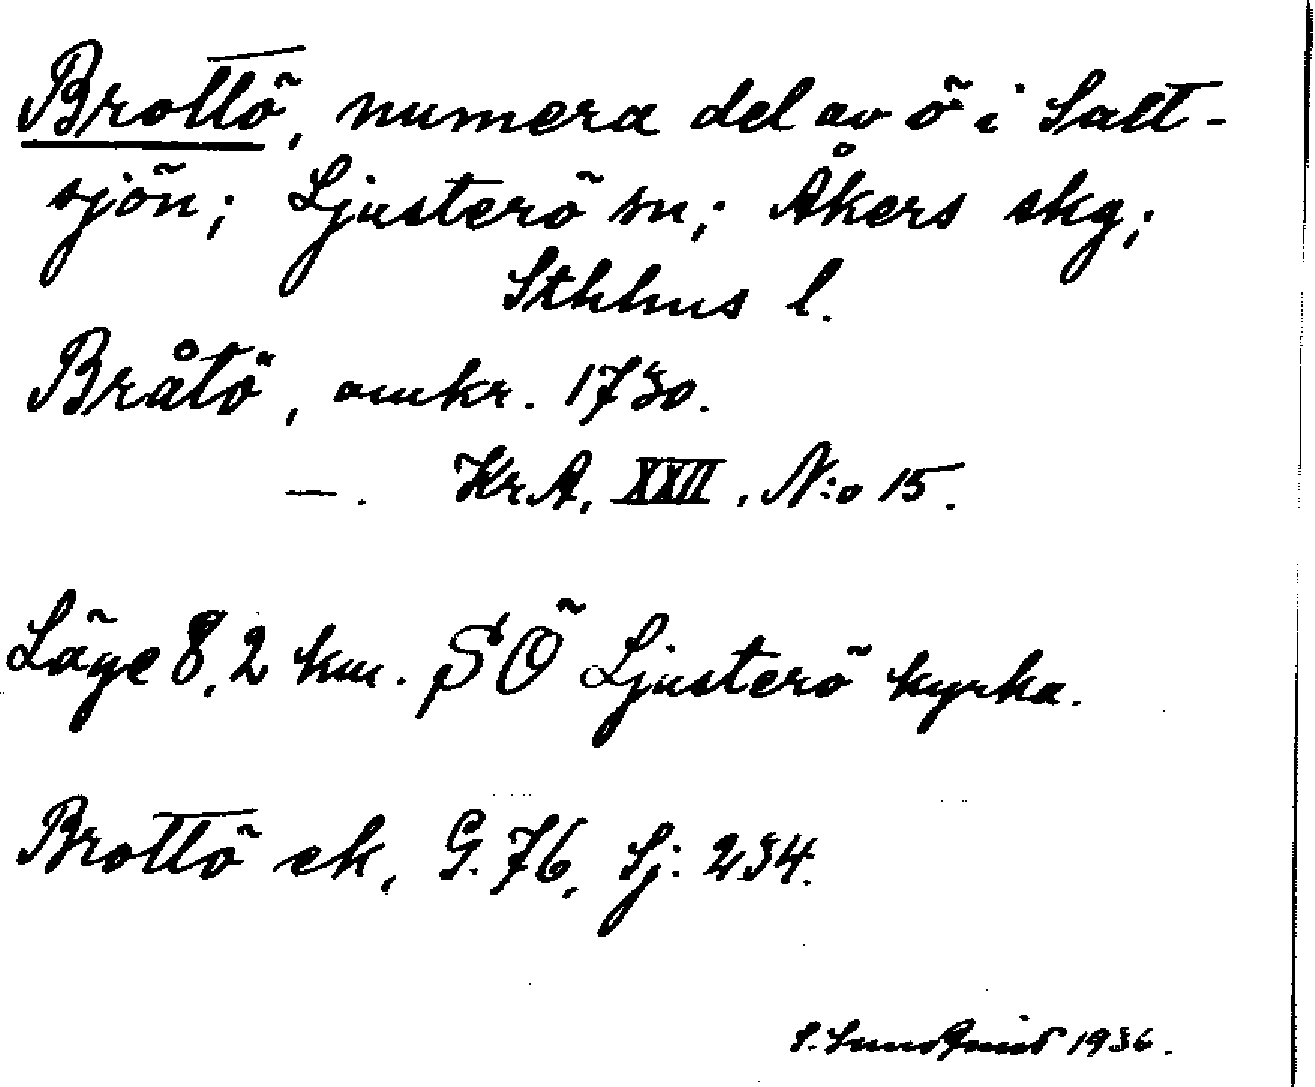 Brottö, numera del av ö i Salt-
sjön; Ljusterö sn; Åkers skg;
Sthlms l.
Bråtö, omkr. 1730.
—. KrA, XXII, N:o 15.
Läge 8,2 km. SÖ Ljusterö kyrka.
Brottö ek, G. 76, Sj: 234.
S. Sundqvist 1936.